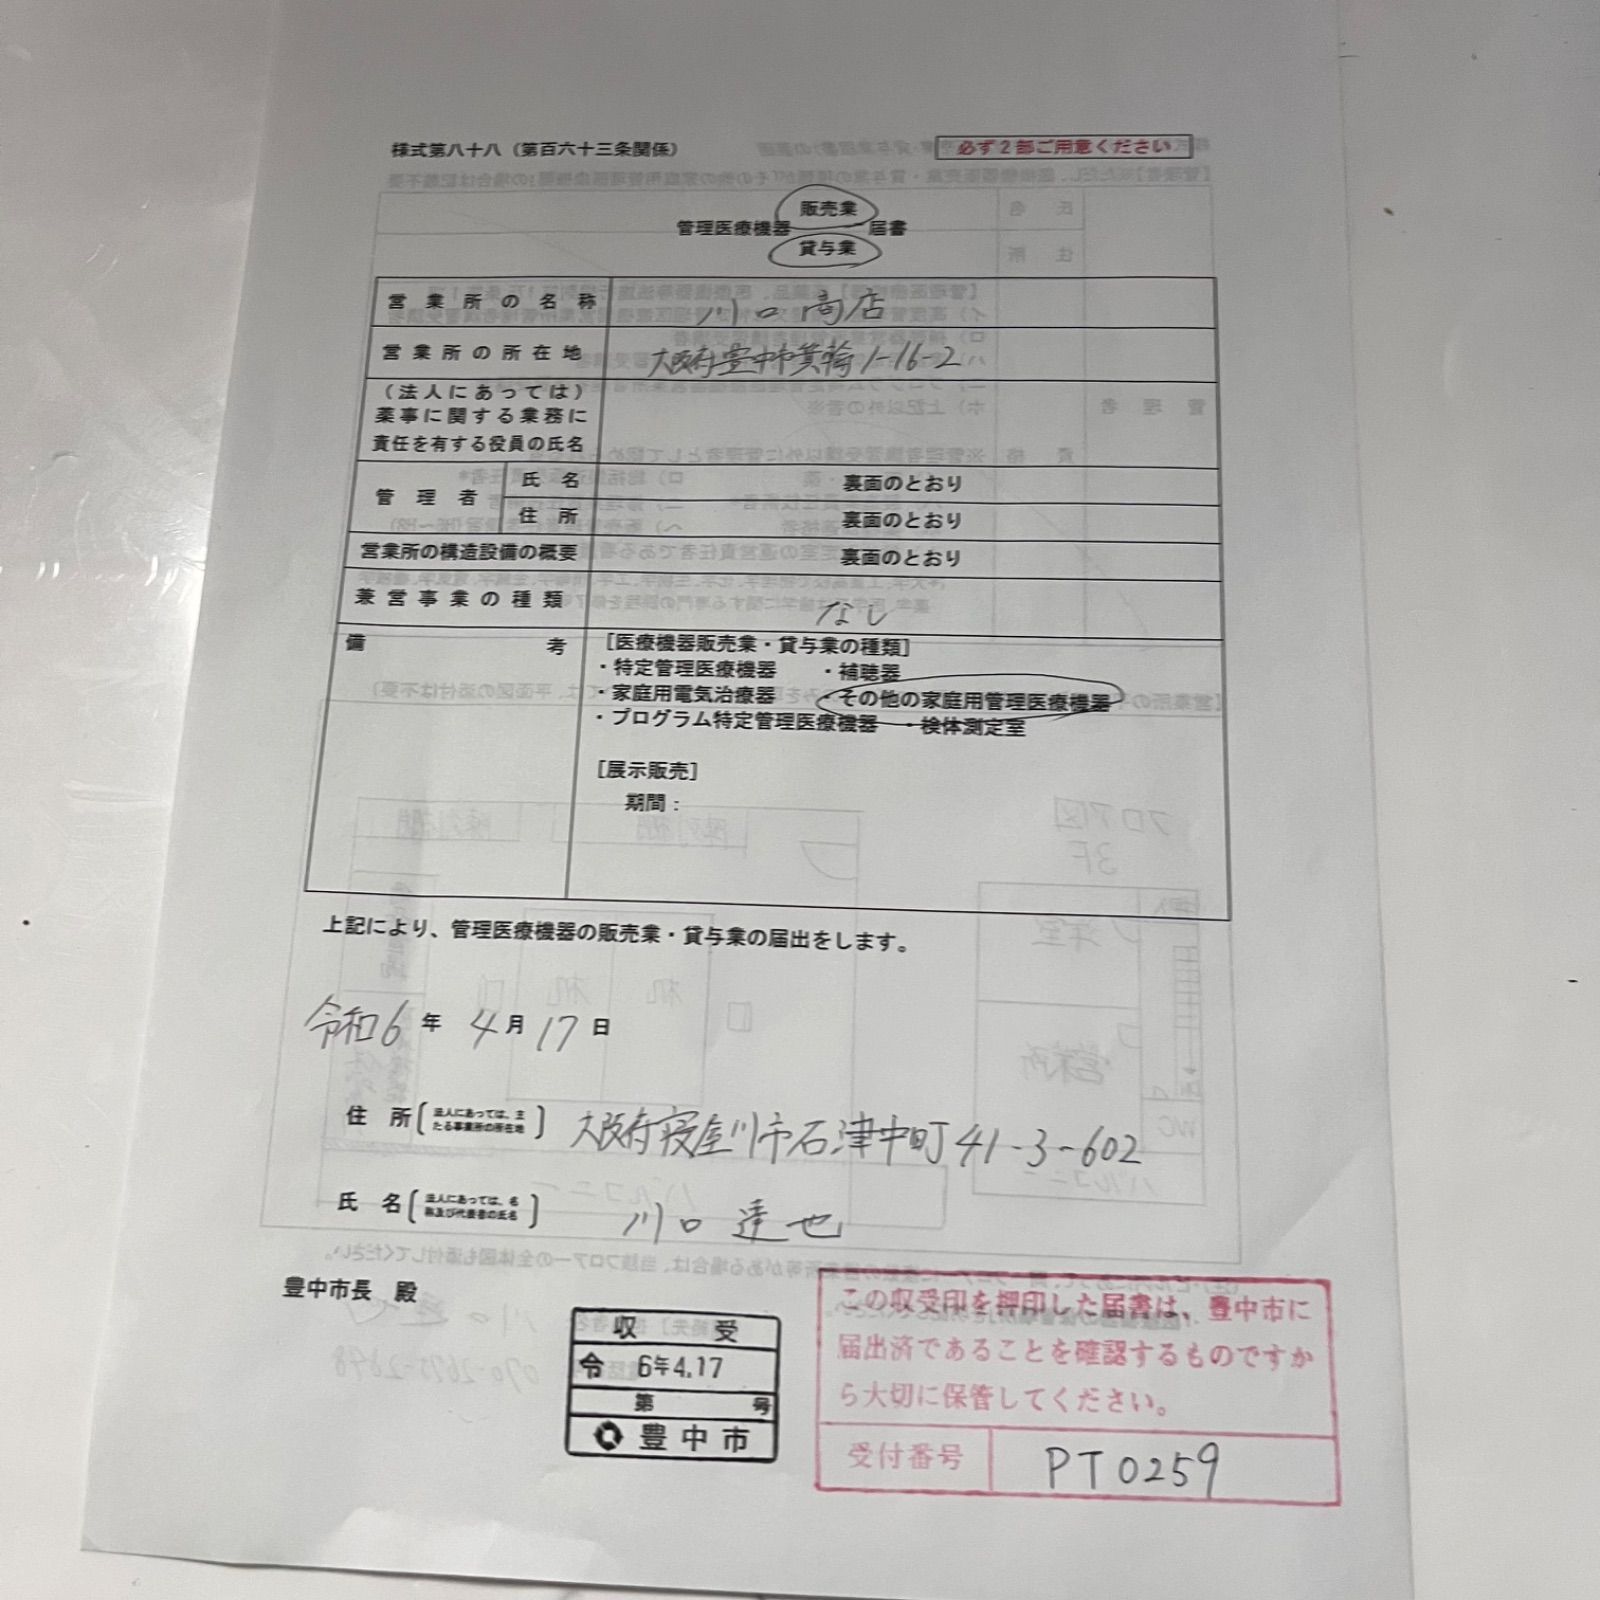 様式第八十八（第百六十三条関係）
必ず2部ご用意ください
販売業
管理医療機器　届書
貸与業
営業所の名称　川口商店
営業所の所在地　大阪府豊中市箕輪1-16-2
（法人にあっては）
薬事に関する業務に
責任を有する役員の氏名
管理者　氏名　裏面のとおり
住所　裏面のとおり
営業所の構造設備の概要　裏面のとおり
兼営事業の種類　なし
備考　［医療機器販売業・貸与業の種類］
・特定管理医療機器　・補聴器
・家庭用電気治療器　・その他の家庭用管理医療機器
・プログラム特定管理医療機器　・検体測定室
［展示販売］
期間：
上記により、管理医療機器の販売業・貸与業の届出をします。
令和6年 4月 17日
住所（法人にあっては、主たる事業所の所在地）　大阪府寝屋川市石津中町41-3-602
氏名（法人にあっては、名称及び代表者の氏名）　川口達也
豊中市長　殿
収受
令 6年4.17
第　号
豊中市
この収受印を押印した届書は、豊中市に
届出済であることを確認するものですか
ら大切に保管してください。
受付番号　PT0259